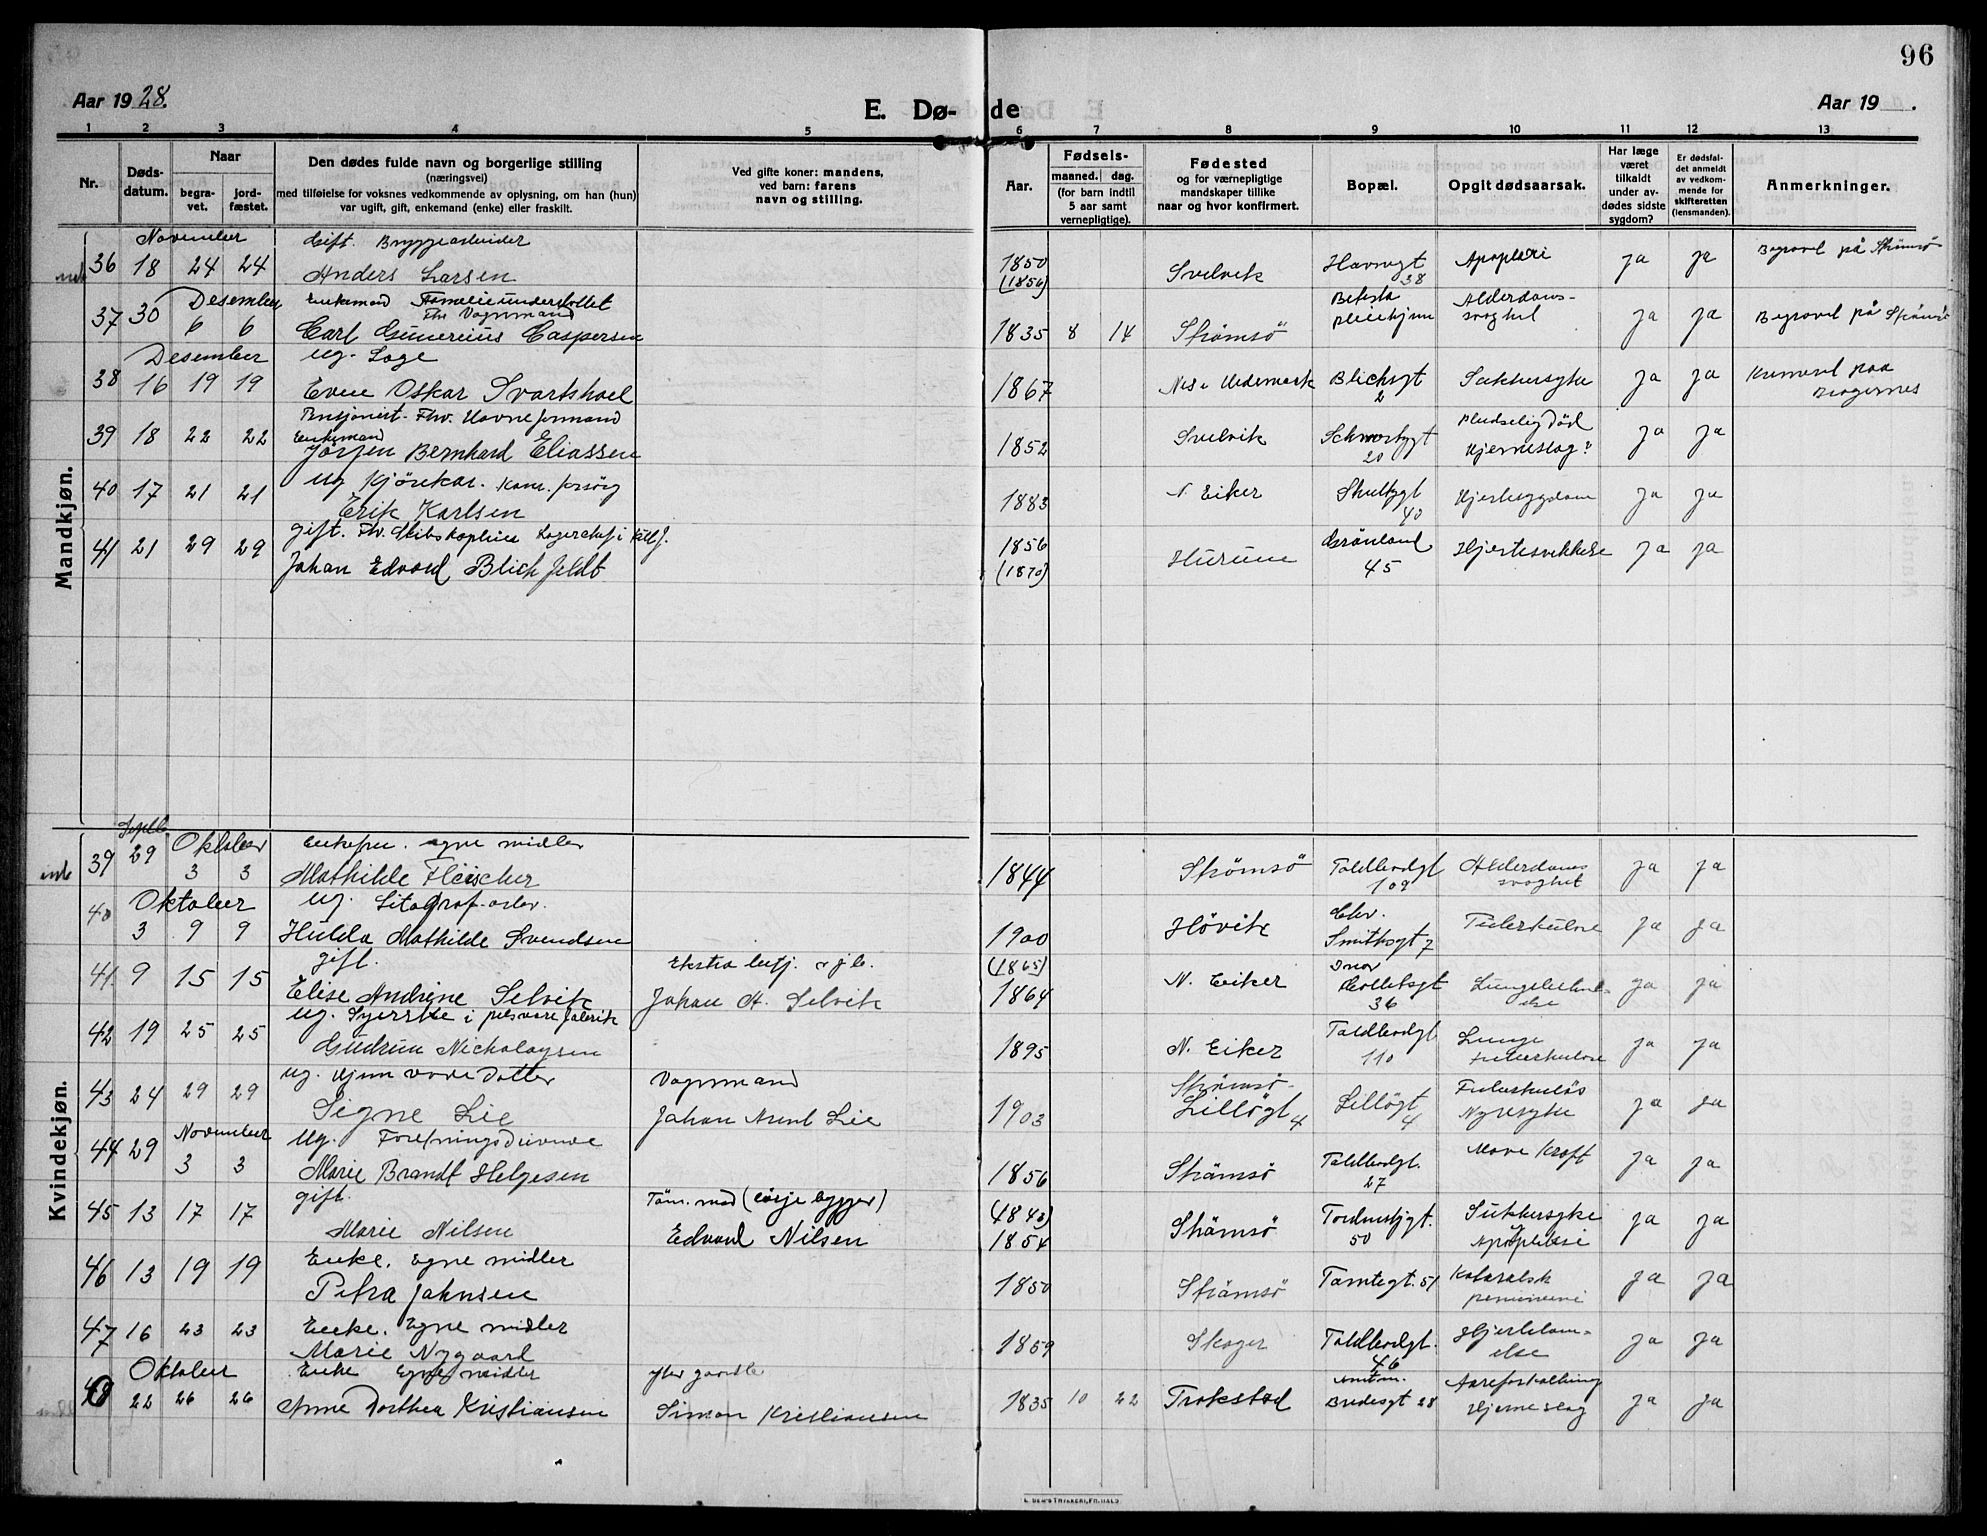 96
Aar 1928.
E. Dø-
de
Aar 19 .
1 2 3 4 5 6 7 8 9 10 11 12 13
Nr.
Døds-
datum.
Naar
begra-
vet.
jord-
fæstet.
Den dødes fulde navn og borgerlige stilling
(næringsvei)
med tilføielse for voksnes vedkommende av oplysning, om han (hun)
var ugift, gift, enkemand (enke) eller fraskilt.
Ved gifte koner: mandens,
ved barn: farens
navn og stilling.
Aar.
Fødsels-
maaned. dag.
(for barn indtil
5 aar samt
vernepligtige).
Fødested
og for værnepligtige
mandskaper tillike
naar og hvor konfirmert.
Bopæl.
Opgit dødsaarsak.
Har læge
været
tilkaldt
under av-
dødes sidste
sygdom?
Er dødsfal-
det anmeldt
av vedkom-
mende for
skifteretten
(lensmanden).
Anmerkninger.
Mandkjøn.
November Gift. Bryggearbeider
36 18 24 24 Anders Larsen 1850 (1856) Svelvik Havnegt 38 Apoplexi ja ja Begravet på Strømsø
Desember Enkemand Familieunderstøttet
Fhv Vognmand
37 30 6 6 Carl Gunerius Caspersen 1835 8 14 Strømsø Betesta pleiehjem Alderdoms-
svaghet ja ja Begravet på Strømsø
Desember ug.
38 16 19 19 Even Oskar Svartshoel 1867 Nes Hedemark Blichsgt 2 Sukkersyke ja ja Kremeret paa
Bragernes
Pensjonist. Fhv. Havneformand
Enkemand
39 18 22 22 Jørgen Bernhard Eliassen 1852 Svelvik Schwartzgt 20 Pludselig Død
Hjerneslag? ja ja
ug Kjørekar. Kom. forsørg
40 17 21 21 Erik Karlsen 1883 N. Eiker Skultzgt 40 Hjertesygdom ja ja
gift. Fhv. Skibskaptein Lagerchef i
41 21 29 29 Johan Edvard Blichfeldt 1856 (1870) Hurum Grønland 45 Hjertesvekkelse ja ja
Kvindekjøn.
Septb Oktober Enkefru. egne midler
39 29 3 3 Mathilde Fleischer 1844 Strømsø Toldbodgt 109 Alderdoms
svaghet ja ja
Oktober ug. Litograf-arb.
40 3 9 9 Hulda Mathilde Svendsen 1900 Høvik Chr.
Smithsgt 7 Tuberkulose ja ja
gift. Ekstra betj.
41 9 15 15 Elise Andrine Selvik Johan A. Selvik (1865) 1864 N. Eiker Collettsgt 36 ja ja
ug. Syerske i pelsvarefabrik
42 19 25 25 Gudrun Nickolaysen 1895 N. Eiker Toldbodgt 110 Lunge
tuberkulose ja ja
ug. Hjemmeværende Datter Vognmand
43 24 29 29 Signe Lie Johan Arnt Lie 1903 Strømsø-
Lilløgt 4 Lilløgt 4 Tuberkuløs
Nyresyke ja ja
November Ug. Foretningsdrivende
44 29 3 3 Marie Brandt Helgesen 1856 Strømsø Toldbodgt. 27 Mave Kræft ja ja
gift. Tøm. md
45 13 17 17 Marie Nilsen Edvard Nilsen (1843) 1854 Strømsø Tordenskjgt. 50 Sukkersyke
og
Apoplexi ja ja
Enke. Egne midler
46 13 19 19 Petra Johnsen 1850 Strømsø Tomtegt. 51 Katarralsk ja ja
Enke. Egne midler
47 16 23 23 Marie Nygaard 1859 Skoger Toldbodgt. 46 Hjertelam-
else ja ja
Oktober Enke Egne midler efter gaardb.
48 22 26 26 Anne Dorthea Kristiansen Simon Kristiansen 1835 10 22 Trøkstad Amtm.
Bredesgt 28 Aareforkalkning
Hjerneslag ja ja